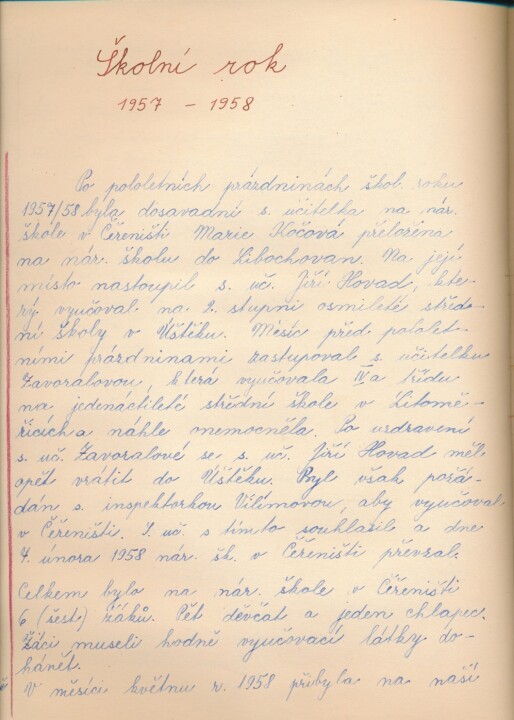 Školní rok
1957 – 1958
Po pololetních prázdninách škol. roku
1957/58 byla dosavadní s. učitelka na nár.
škole v Čeřeništi Marie Kočová přeložena
na nár. školu do Libochovan. Na její
místo nastoupil s. uč. Jiří Hovad, kte-
rý vyučoval na 2. stupni osmileté střed-
ní školy v Úštěku. Měsíc před pololet-
ními prázdninami zastupoval s. učitelku
Zavoralovou, která vyučovala IV.a třídu
na jedenáctileté střední škole v Litomě-
řicích a náhle onemocněla. Po uzdravení
s. uč. Zavoralové se s. uč. Jiří Hovad měl
opět vrátit do Úštěku. Byl však požá-
dán s. inspektorkou Vilímovou, aby vyučoval
v Čeřeništi. S. uč. s tímto souhlasil a dne
4. února 1958 nár. šk. v Čeřeništi převzal.
Celkem bylo na nár. škole v Čeřeništi
6 (šest) žáků. Pět děvčat a jeden chlapec.
Žáci museli hodně vyučovací látky do-
hánět.
V měsíci květnu r. 1958 přibyla na naší